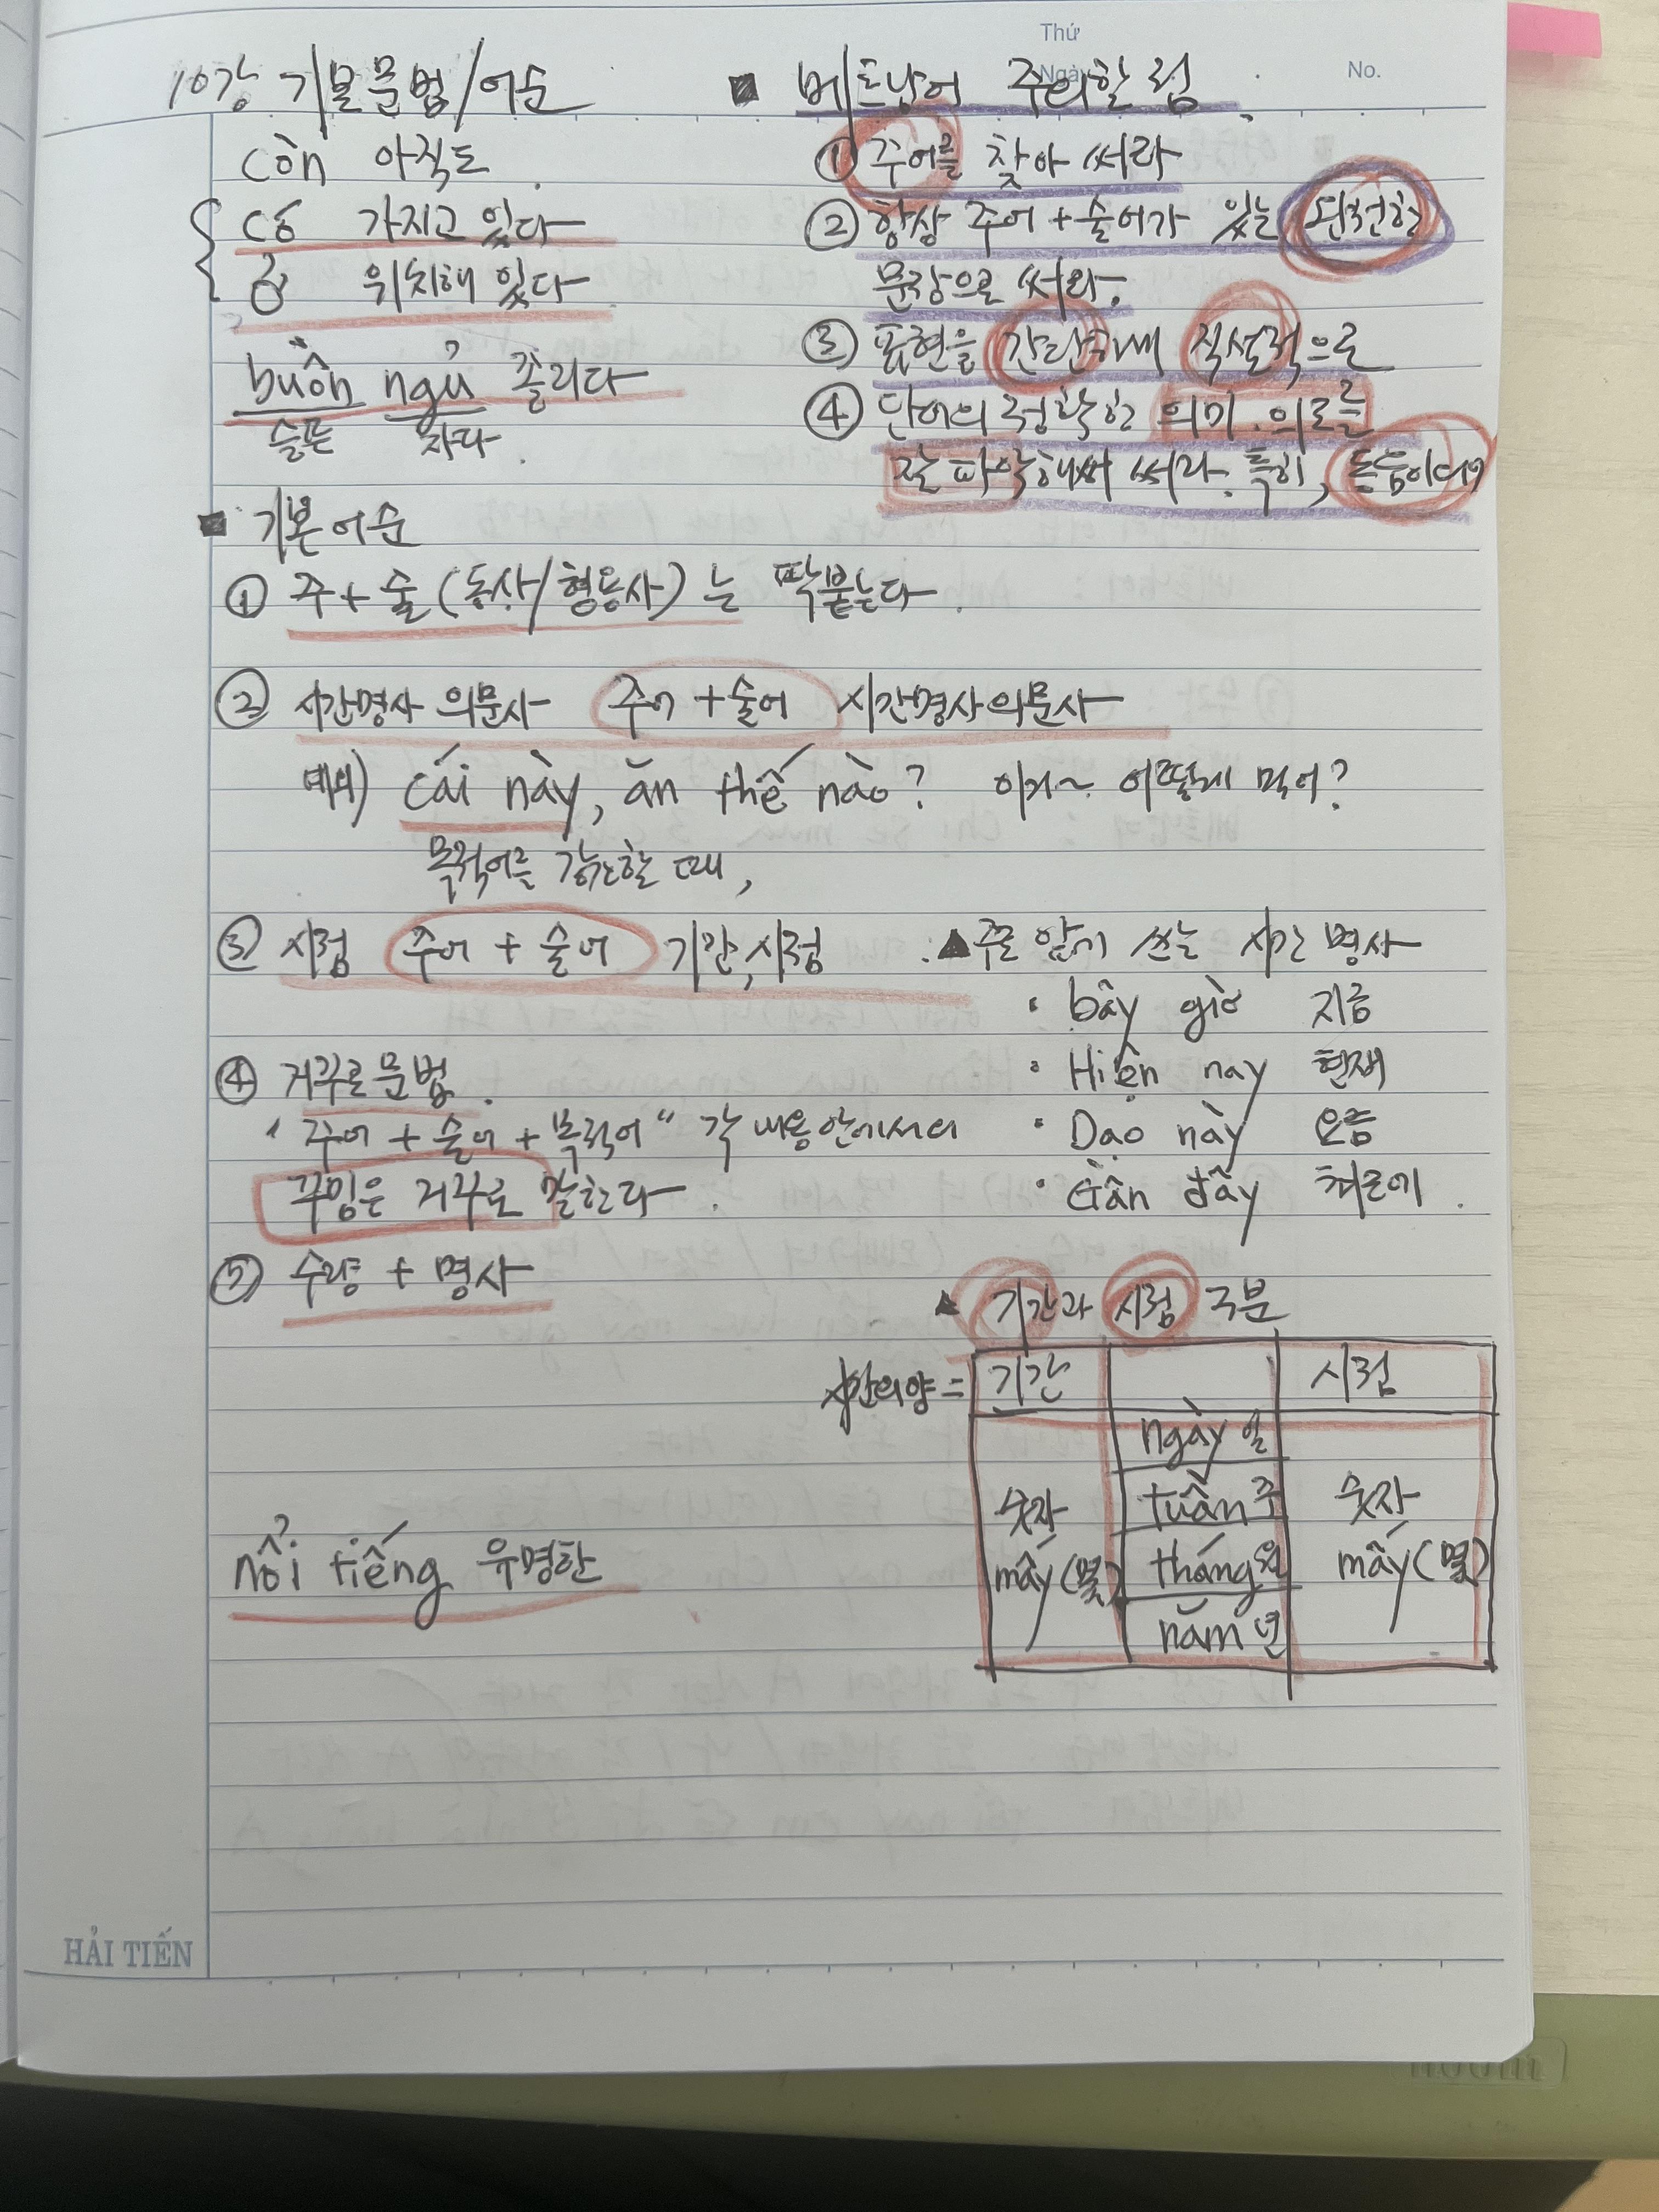 Thứ
Ngày
No.
10강 기본문법/어순
còn 아직도.
có 가지고 있다
ở 위치해 있다
buồn ngủ 졸리다
슬픈 자다.
■ 베트남어 주의할 점.
① 주어를 찾아 써라
② 항상 주어+술어가 있는 완전한
문장으로 써라.
③ 표현을 간단하게 직설적으로
④ 단어의 정확한 의미.의도를
잘 파악해서 써라. 특히,
■ 기본어순
① 주+술(동사/형용사)는 딱붙는다.
② 시간명사 의문사 주어+술어 시간명사 의문사
예외) cái này, ăn thế nào? 이거~ 어떻게 먹어?
목적어를 강조할 때,
③ 시점 주어+술어 기간,시점
④ 거꾸로문법.
"주어+술어+목적어" 각 내용안에서의
꾸밈은 거꾸로 말한다.
⑤ 수량+명사
▲주로 앞에 쓰는 시간 명사
· bây giờ 지금
· Hiện nay 현재
· Dạo này 요즘
· Gần đây 최근에.
▲ 기간과 시점 구분
시간의양= 기간 시점
ngày 일
숫자 tuần 주 숫자
mấy(몇) tháng월 mấy(몇)
năm 년
nổi tiếng 유명한
HẢI TIẾN